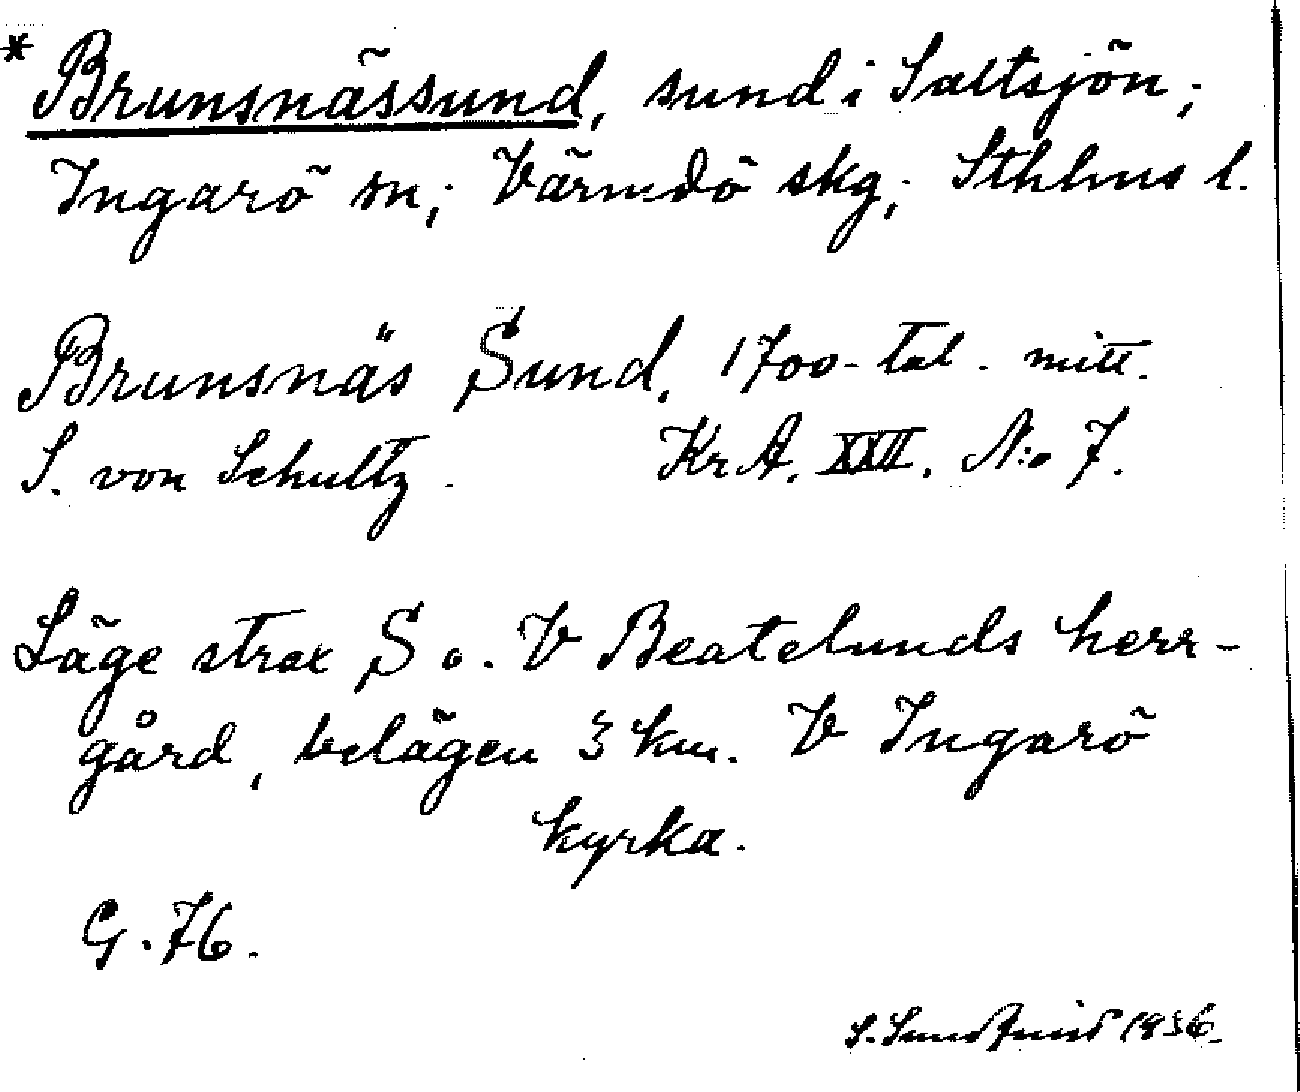 * Brunsnässund, sund i Saltsjön;
Ingarö sn; Värmdö skg; Sthlms l.
Brunsnäs Sund. 1700-tal. mitt.
S. von Schultz. KrA. XXII. N:o 7.
Läge strax S o. V Beatelunds herr-
gård, belägen 3 km. V Ingarö
kyrka.
G. 76.
S. Sundqvist 1936.